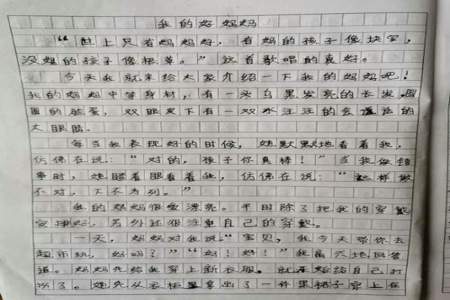 我的好妈妈
“世上只有妈妈好，有妈的孩子像块宝，
没妈的孩子像根草。”这首歌唱的真好。
今天我就来给大家介绍一下我的妈妈吧！
我的妈妈中等身材，有一头乌黑发亮的长发，圆
圆的脸蛋，双眼皮下有一双水汪汪的会说话的
大眼睛。
每当我表现好的时候，她默默地看着我，
仿佛在说：“对的，孩子你真棒！”当我做错
事时，她瞪着眼看着我，仿佛在说：“这样做
不对，下不为例。”
我的妈妈很爱漂亮。平日除了把我的穿戴
安排好，另外还很注重自己的穿戴。
一天，妈妈对我说“宝贝，我今天带你去
超市玩，好吗？”“好！妈！”我高兴地回答
道。妈妈先给我穿上新衣服，就开始给自己打
扮了。她先从衣柜里拿出了一件黑裙子穿上在